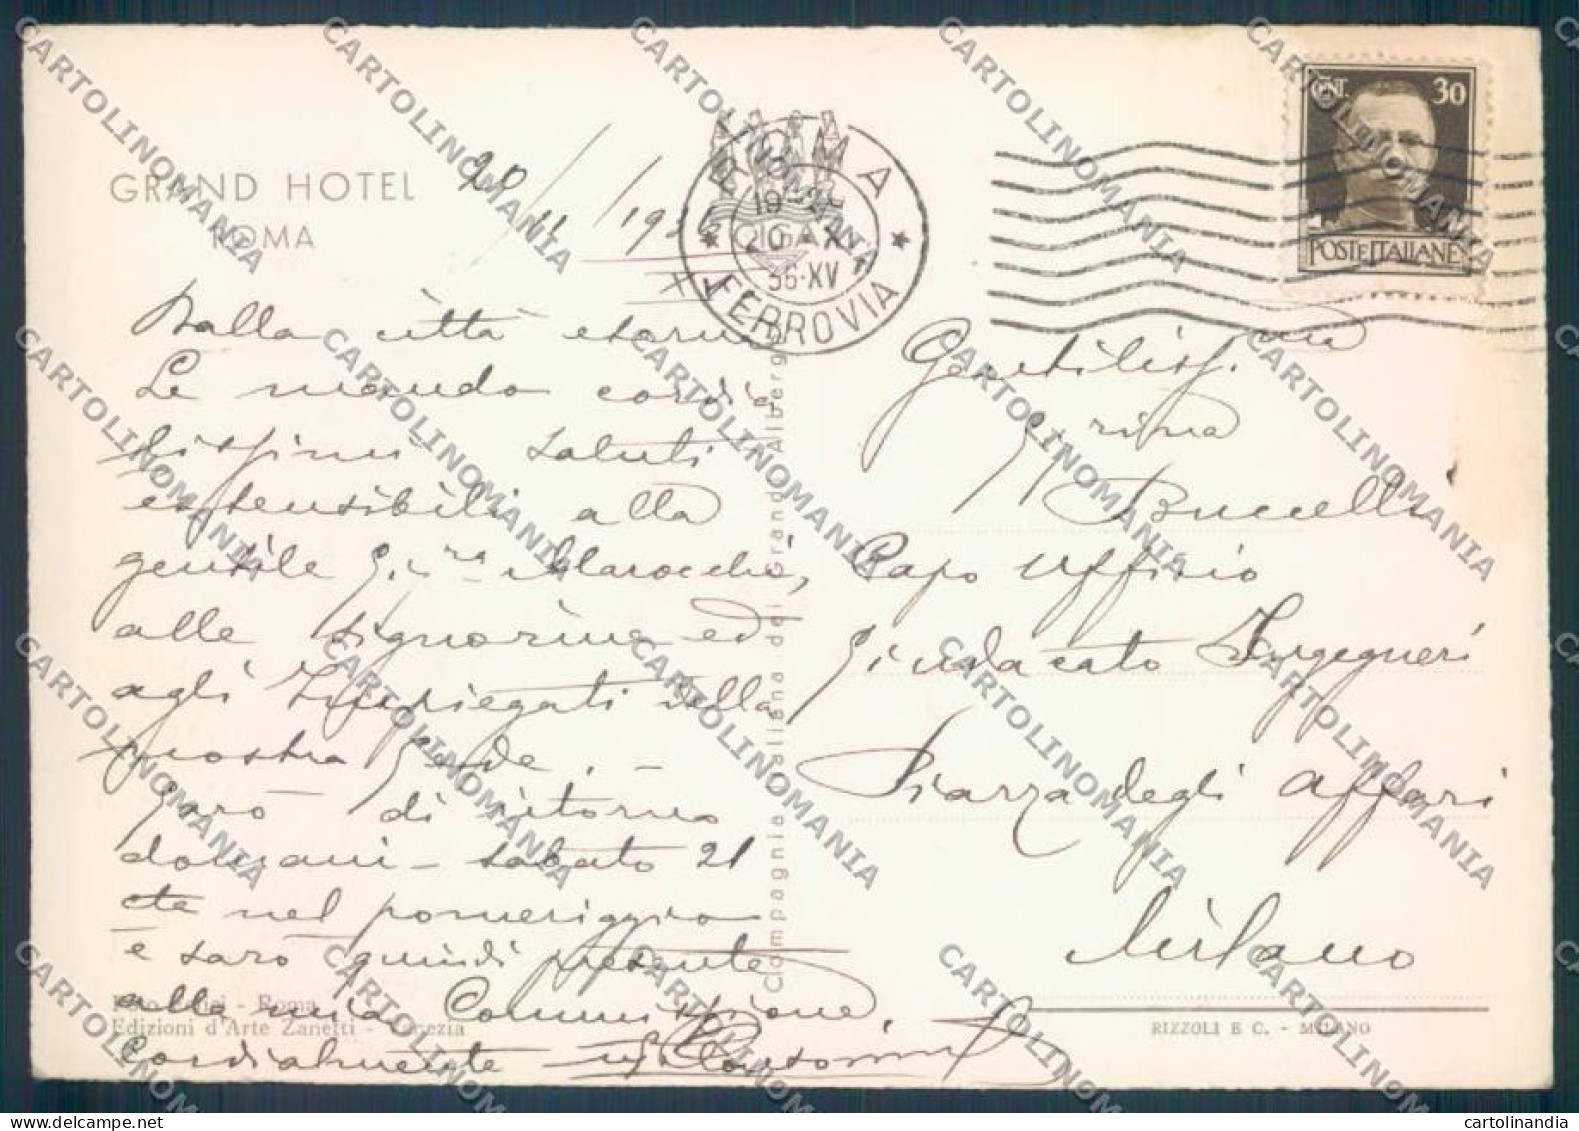 GRAND HOTEL
ROMA
20/11/1936
XV
Dalla città eterna
Le mando cordia
lissimi saluti
estensibili alla
gentile Sig.ra Marocchi,
alle signorine ed
agli Impiegati della
nostra Sede. -
Sarò di ritorno
domani - sabato 21
cte nel pomeriggio
e sarò quindi presente
alla mia Commissione.
Cordialmente
Edizioni d'Arte Zanetti - Venezia
ROMA
19-
20
36-XV
FERROVIA
CIGA
Compagnia Italiana dei Grandi Alberghi
CENT. 30
POSTE ITALIANE
Gentiliss. ma
Sig.rina
Buccelli
Capo Ufficio
Sindacato Ingegneri
Piazza degli Affari
Milano
RIZZOLI E C. - MILANO
CARTOLINOMANIA
cartolinandia